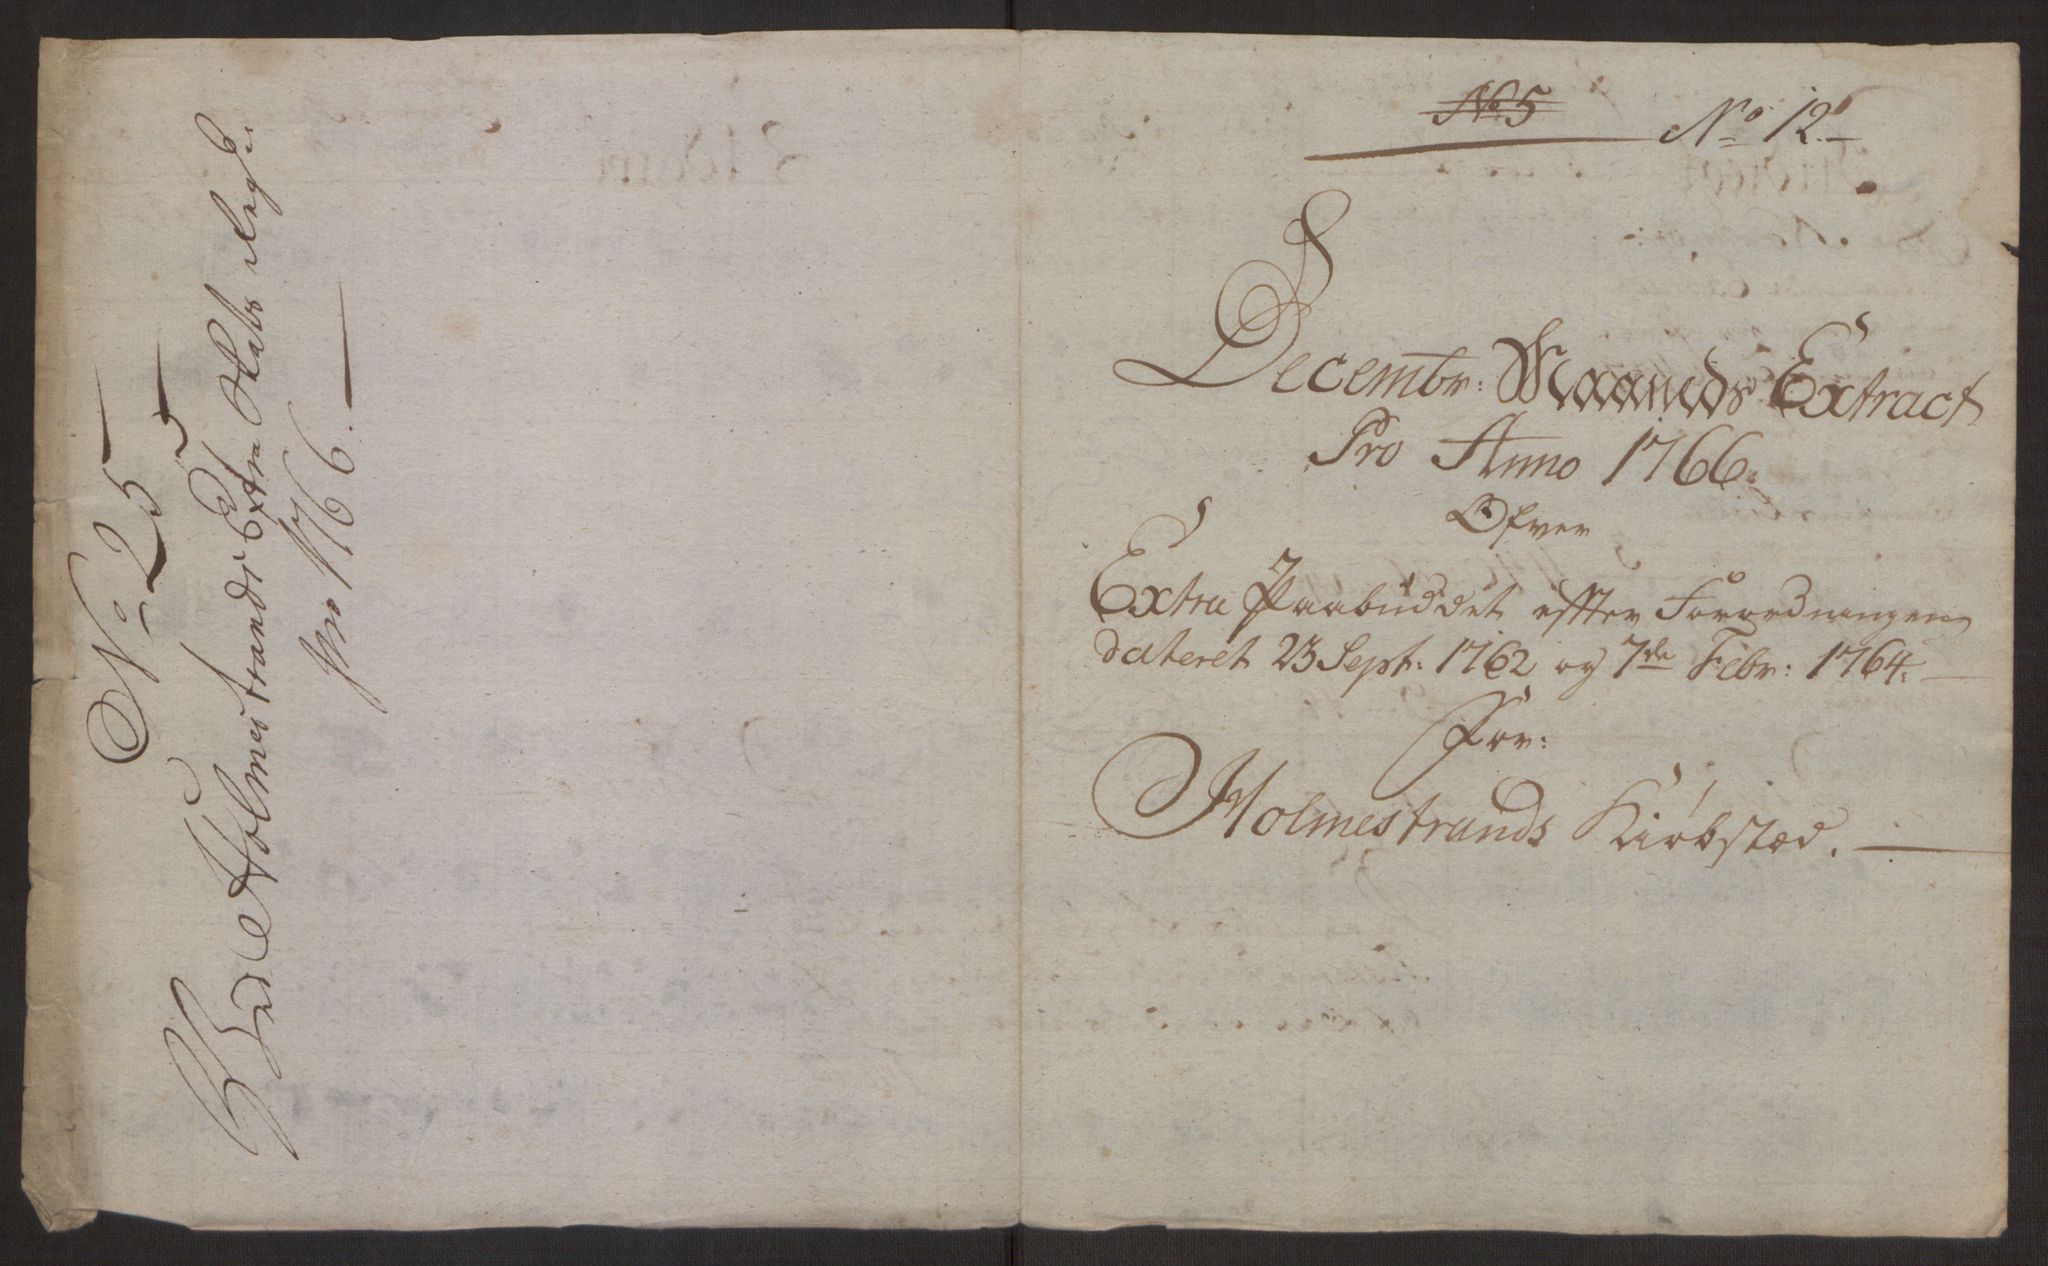 No 25
Ved Holmestrands Extra Skatts Regsk:
pro 1766.
No 5
No 12.
Decembr: Maaneds Extract
Pro Anno 1766.
Ofver
Extra Paabuddet effter Forordningen
dateret 23 Sept: 1762 og 7de Febr: 1764.
For:
Holmestrands Kiøbstæd.